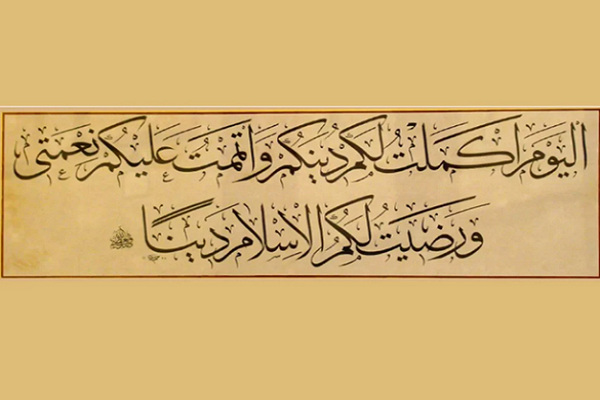 اليَومَ اَكمَلتُ لَكُم دُينَكُم وَاَتمَمتُ عَلَيكُم نِعمَتى
وَرَضيتُ لَكُمُ الاِسلامَ دَيناً